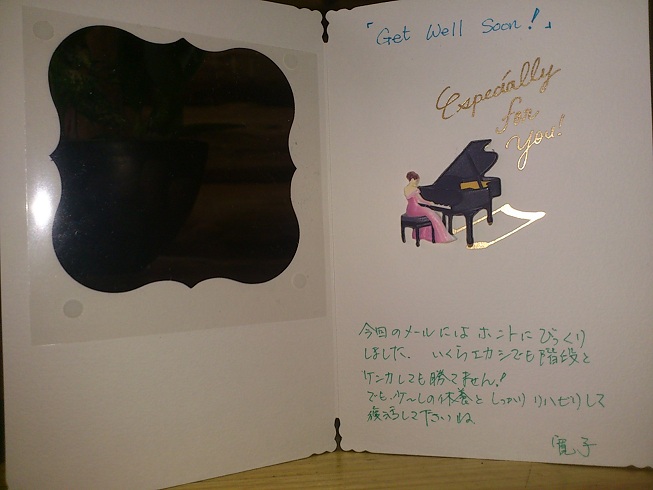 「Get Well Soon!」
Especially
for
You!
今回のメールにはホントにびっくり
しました. いくらエカシでも階段と
ケンカしても勝てません!
でも、ケ〜しの休養としっかりリハビリして
復活して下さいね
寛子